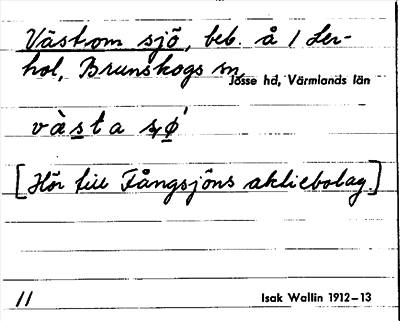 Västom sjö, beb. å 1 Ler-
hol, Brunskogs sn,
Jösse hd, Värmlands län
[Hör till Fångsjöns aktiebolag.]
11
Isak Wallin 1912–13